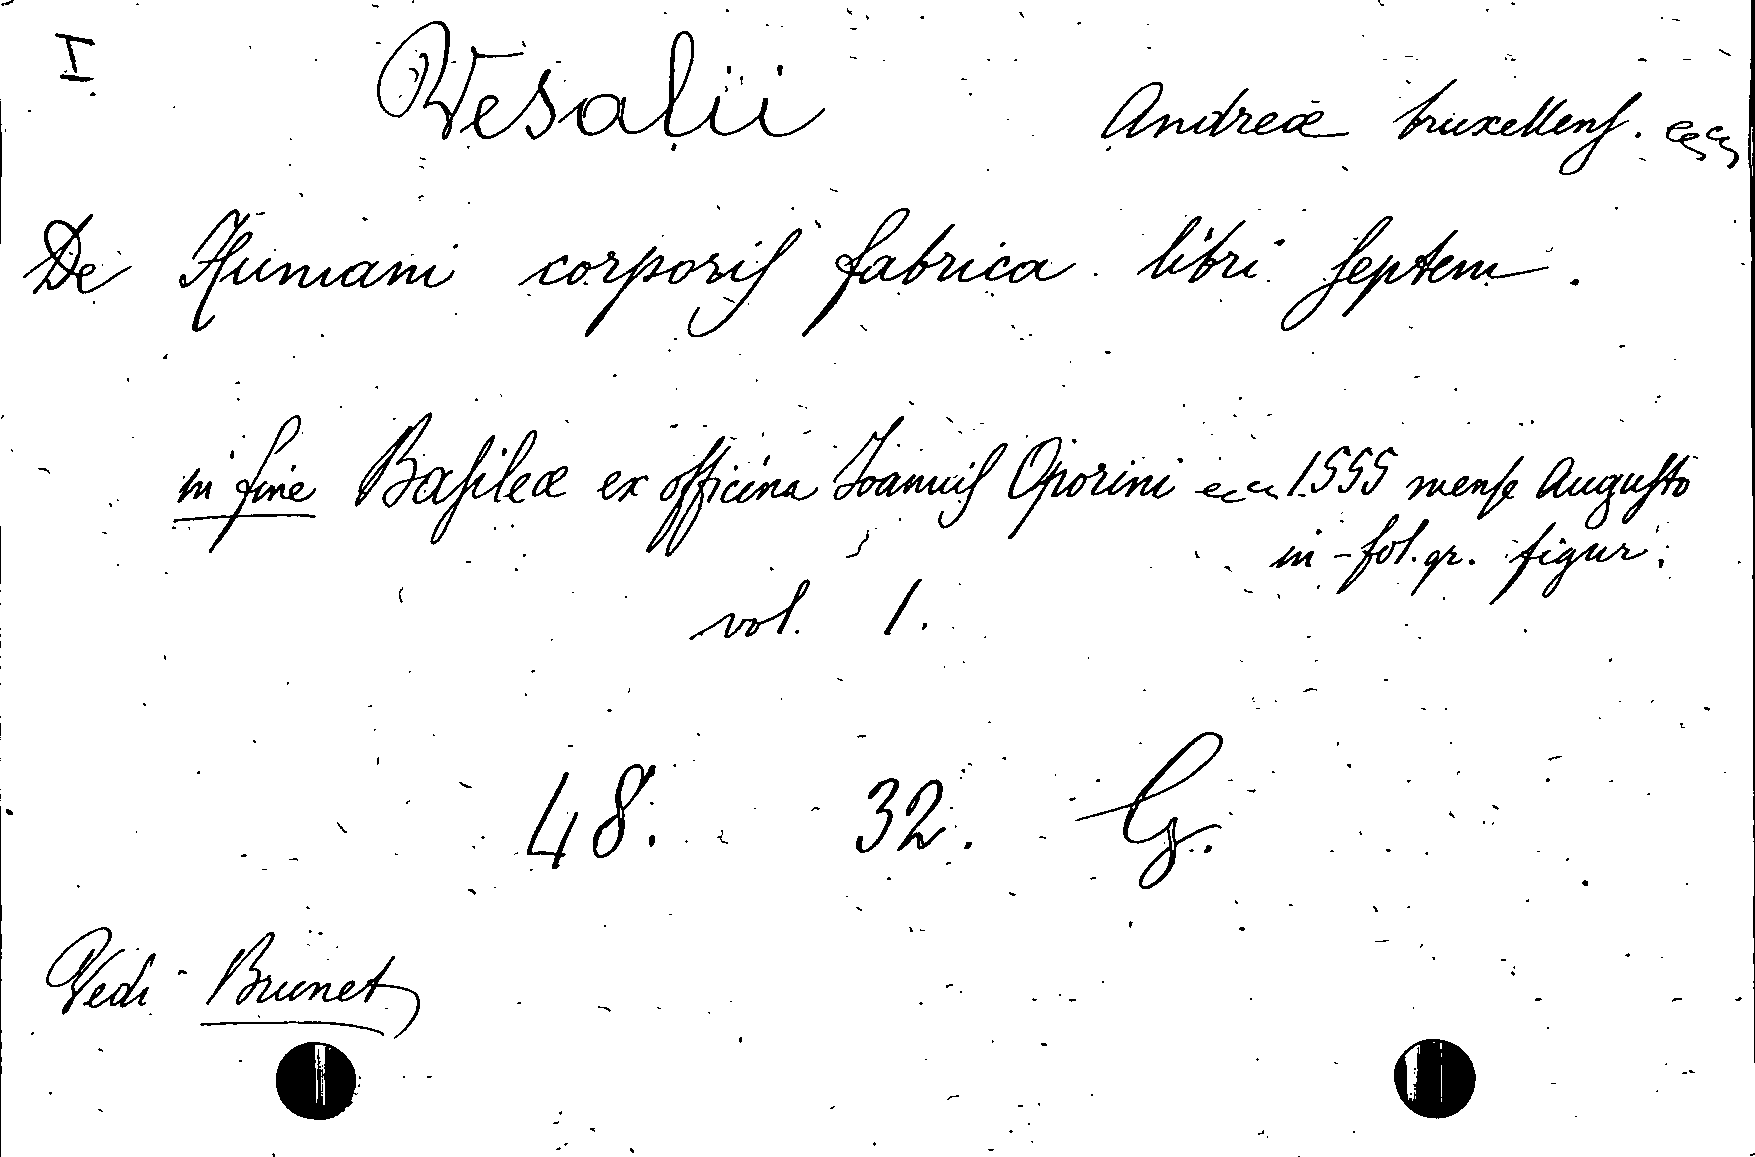 I Vesalii Andreæ bruxellens. ecc
De Humani corporis fabrica libri septem.
in fine Basileæ ex officina Joannis Oporini ecc 1555 mense Augusto
in-fol. gr. figur.
vol. 1.
48. 32. G.
Vedi Brunet